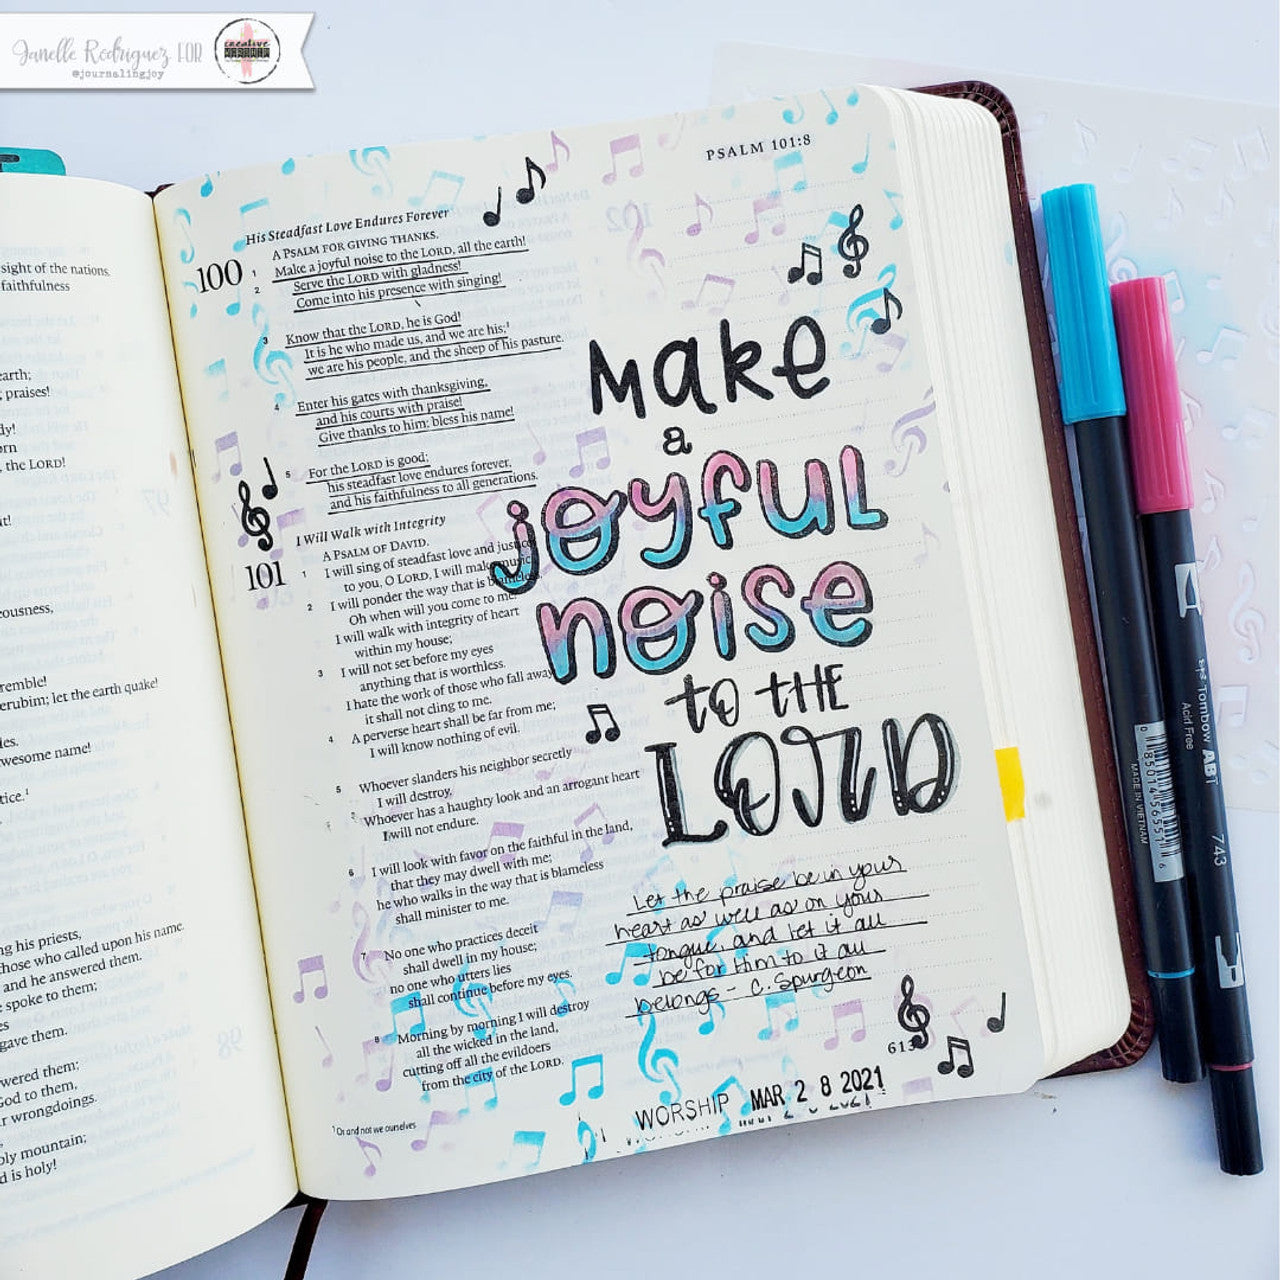 Janelle Rodriguez FOR
creative
WORSHIP
@journalingjoy
PSALM 101:8
sight of the nations.
faithfulness
earth;
praises!
the LORD!
cousness,
let the earth quake!
wesome name!
his priests,
those who called upon his name.
and he answered them.
spoke to them;
gave them.
God to them,
wrongdoings.
mountain;
is holy!
His Steadfast Love Endures Forever
A PSALM FOR GIVING THANKS.
100
1 Make a joyful noise to the LORD, all the earth!
2 Serve the LORD with gladness!
Come into his presence with singing!
3 Know that the LORD, he is God!
It is he who made us, and we are his;1
we are his people, and the sheep of his pasture.
4 Enter his gates with thanksgiving,
and his courts with praise!
Give thanks to him; bless his name!
5 For the LORD is good;
his steadfast love endures forever,
and his faithfulness to all generations.
I Will Walk with Integrity
A PSALM OF DAVID.
101
1 I will sing of steadfast love and justice;
to you, O LORD, I will make music.
2 I will ponder the way that is blameless.
Oh when will you come to me?
I will walk with integrity of heart
within my house;
3 I will not set before my eyes
anything that is worthless.
I hate the work of those who fall away;
it shall not cling to me.
4 A perverse heart shall be far from me;
I will know nothing of evil.
5 Whoever slanders his neighbor secretly
I will destroy.
Whoever has a haughty look and an arrogant heart
I will not endure.
6 I will look with favor on the faithful in the land,
that they may dwell with me;
he who walks in the way that is blameless
shall minister to me.
7 No one who practices deceit
shall dwell in my house;
no one who utters lies
shall continue before my eyes.
8 Morning by morning I will destroy
all the wicked in the land,
cutting off all the evildoers
from the city of the LORD.
1 Or and not we ourselves
Make
a
joyful
noise
to THE
LORD
Let the praise be in your
heart as well as on your
tongue, and let it all
be for Him to it all
belongs - C. Spurgeon
613
WORSHIP MAR 2 8 2021
Tombow ABT
Acid Free
743
MADE IN VIETNAM